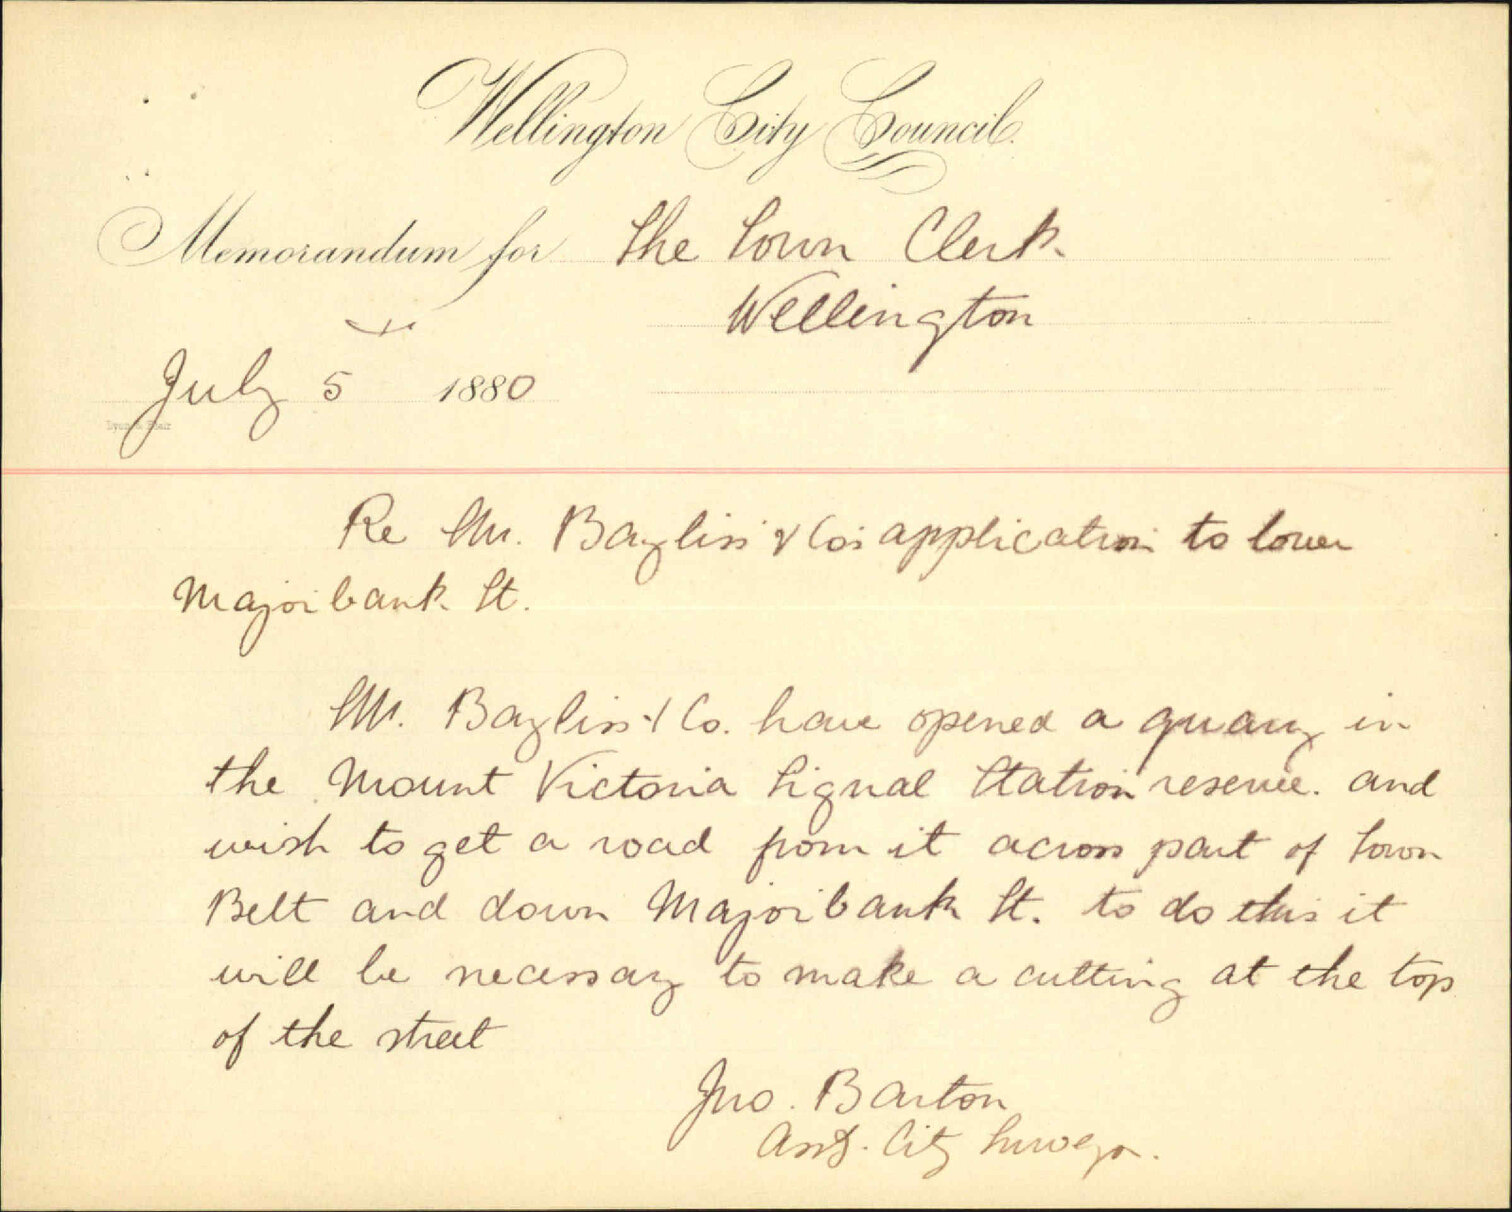 Wellington City Council.
Memorandum for The Town Clerk
Wellington
July 5 1880
Lyon & Blair
Re Mr. Bayliss & Co's application to lower
Majoribank St.
Mr. Bayliss & Co. have opened a quarry in
the Mount Victoria Signal Station reserve. and
wish to get a road from it across part of Town
Belt and down Majoribank St. to do this it
will be necessary to make a cutting at the top
of the street
Jno. Barton
Asst. City Surveyor.